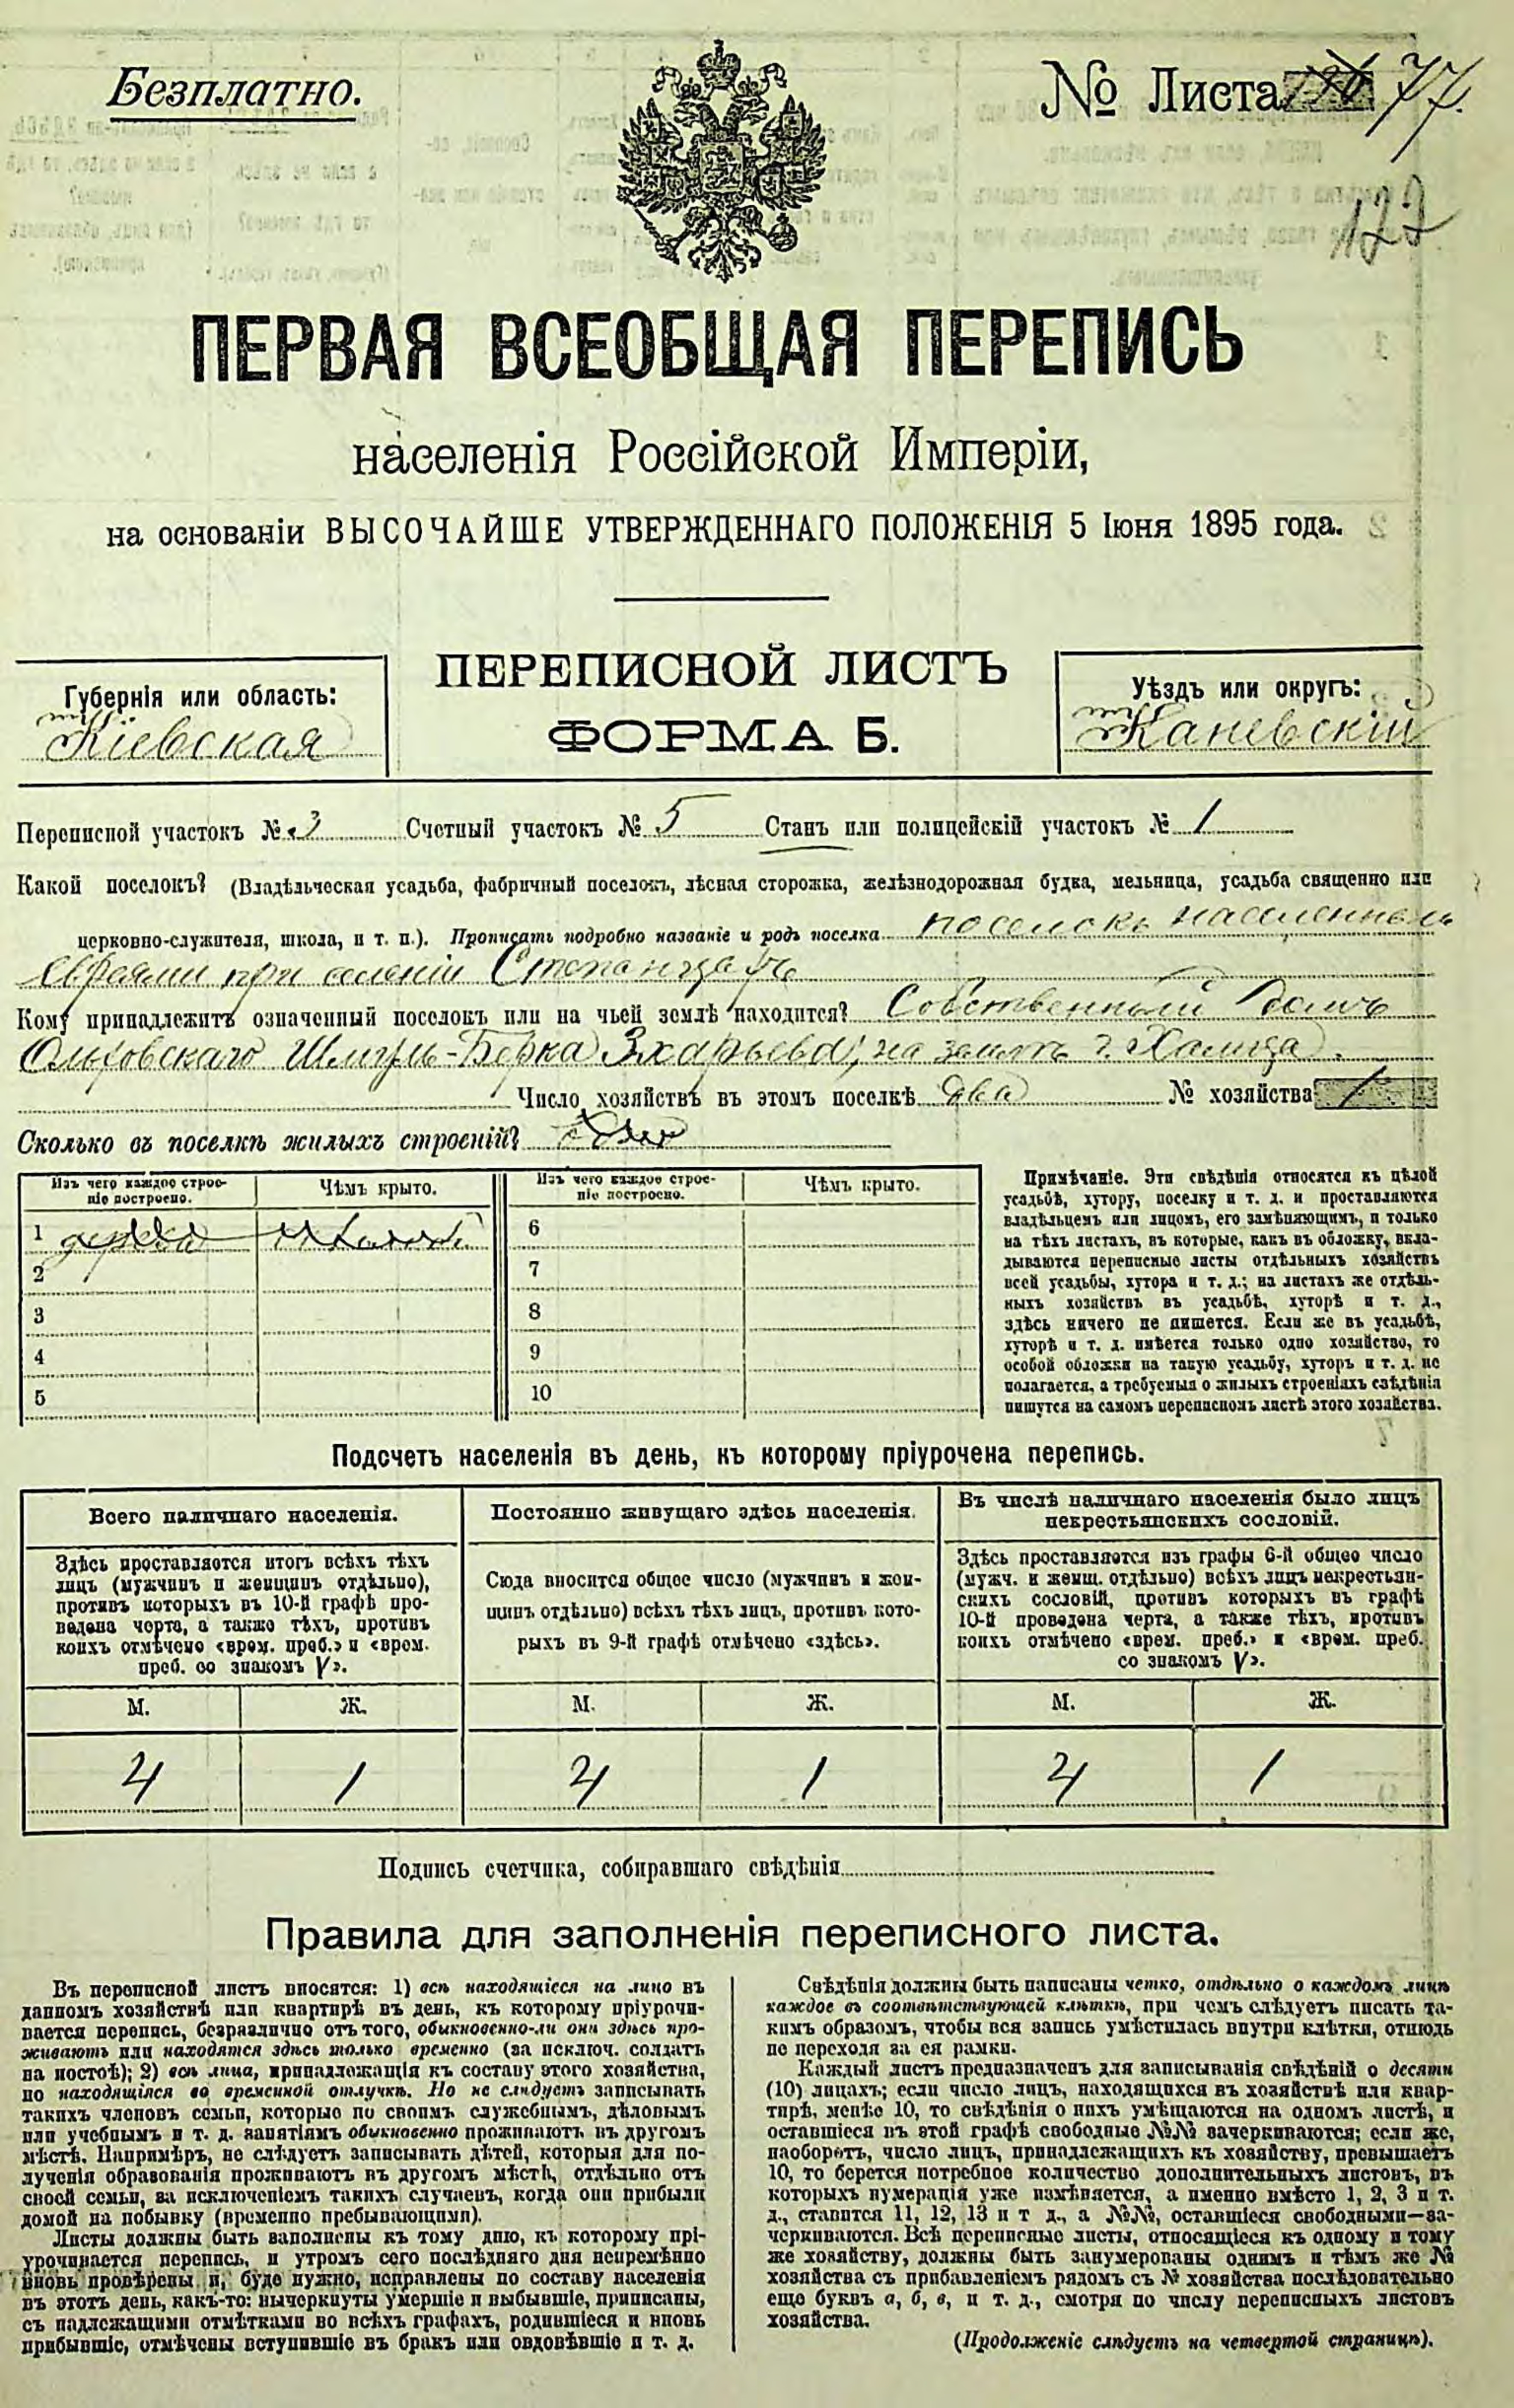 Безплатно.
№ Листа 77.
122
ПЕРВАЯ ВСЕОБЩАЯ ПЕРЕПИСЬ
населенія Россійской Имперіи,
на основаніи ВЫСОЧАЙШЕ УТВЕРЖДЕННАГО ПОЛОЖЕНІЯ 5 Іюня 1895 года.
ПЕРЕПИСНОЙ ЛИСТЪ
ФОРМА Б.
Губернія или область:
Кіевская
Уѣздъ или округъ:
Каневскій
Переписной участокъ № 3 Счетный участокъ № 5 Станъ или полицейскій участокъ № 1
Какой поселокъ? (Владѣльческая усадьба, фабричный поселокъ, лѣсная сторожка, желѣзнодорожная будка, мельница, усадьба священно или
церковно-служителя, школа, и т. п.). Прописать подробно названіе и родъ поселка поселокъ населенный
евреями при селеніи Степанцахъ
Кому принадлежитъ означенный поселокъ или на чьей землѣ находится? Собственный домъ
Ольховскаго Шмуль-Берка Зхарьева, на землѣ г. Халица.
Число хозяйствъ въ этомъ поселкѣ два № хозяйства 1
Сколько въ поселкѣ жилыхъ строеній? один
Изъ чего каждое строеніе построено. Чѣмъ крыто. Изъ чего каждое строеніе построено. Чѣмъ крыто.
1 6
2 7
3 8
4 9
5 10
Примѣчаніе. Эти свѣдѣнія относятся къ цѣлой
усадьбѣ, хутору, поселку и т. д. и проставляются
владѣльцемъ или лицомъ, его замѣняющимъ, и только
на тѣхъ листахъ, въ которые, какъ въ обложку, вкла-
дываются переписные листы отдѣльныхъ хозяйствъ
всей усадьбы, хутора и т. д.; на листахъ же отдѣль-
ныхъ хозяйствъ въ усадьбѣ, хуторѣ и т. д.,
здѣсь ничего не пишется. Если же въ усадьбѣ,
хуторѣ и т. д. имѣется только одно хозяйство, то
особой обложки на такую усадьбу, хуторъ и т. д. не
полагается, а требуемыя о жилыхъ строеніяхъ свѣдѣнія
пишутся на самомъ переписномъ листѣ этого хозяйства.
Подсчетъ населенія въ день, къ которому пріурочена перепись.
Всего наличнаго населенія.
Здѣсь проставляется итогъ всѣхъ тѣхъ
лицъ (мужчинъ и женщинъ отдѣльно),
противъ которыхъ въ 10-й графѣ про-
ведена черта, а также тѣхъ, противъ
коихъ отмѣчено «врем. преб.» и «врем.
преб. со знакомъ V».
М. Ж.
4 1
Постоянно живущаго здѣсь населенія.
Сюда вносится общее число (мужчинъ и жен-
щинъ отдѣльно) всѣхъ тѣхъ лицъ, противъ кото-
рыхъ въ 9-й графѣ отмѣчено «здѣсь».
М. Ж.
4 1
Въ числѣ наличнаго населенія было лицъ
некрестьянскихъ сословій.
Здѣсь проставляется изъ графы 6-й общее число
(мужч. и женщ. отдѣльно) всѣхъ лицъ некрестьян-
скихъ сословій, противъ которыхъ въ графѣ
10-й проведена черта, а также тѣхъ, противъ
коихъ отмѣчено «врем. преб.» и «врем. преб.
со знакомъ V».
М. Ж.
4 1
Подпись счетчика, собиравшаго свѣдѣнія
Правила для заполненія переписного листа.
Въ переписной листъ вносятся: 1) всѣ находящіеся на лицо въ
данномъ хозяйствѣ или квартирѣ въ день, къ которому пріурочи-
вается перепись, безразлично отъ того, обыкновенно-ли они здѣсь про-
живаютъ или находятся здѣсь только временно (за исключ. солдатъ
на постоѣ); 2) всѣ лица, принадлежащія къ составу этого хозяйства,
но находящіяся во временной отлучкѣ. Но не слѣдуетъ записывать
такихъ членовъ семьи, которые по своимъ служебнымъ, дѣловымъ
или учебнымъ и т. д. занятіямъ обыкновенно проживаютъ въ другомъ
мѣстѣ. Напримѣръ, не слѣдуетъ записывать дѣтей, которыя для по-
лученія образованія проживаютъ въ другомъ мѣстѣ, отдѣльно отъ
своей семьи, за исключеніемъ такихъ случаевъ, когда они прибыли
домой на побывку (временно пребывающими).
Листы должны быть заполнены къ тому дню, къ которому прі-
урочивается перепись, и утромъ сего послѣдняго дня непремѣнно
вновь провѣрены и, буде нужно, исправлены по составу населенія
въ этотъ день, какъ-то: вычеркнуты умершіе и выбывшіе, приписаны,
съ надлежащими отмѣтками во всѣхъ графахъ, родившіеся и вновь
прибывшіе, отмѣчены вступившіе въ бракъ или овдовѣвшіе и т. д.
Свѣдѣнія должны быть написаны четко, отдѣльно о каждомъ лицѣ
каждое въ соотвѣтствующей клѣткѣ, при чемъ слѣдуетъ писать та-
кимъ образомъ, чтобы вся запись умѣстилась внутри клѣтки, отнюдь
не переходя за ея рамки.
Каждый листъ предназначенъ для записыванія свѣдѣній о десяти
(10) лицахъ; если число лицъ, находящихся въ хозяйствѣ или квар-
тирѣ, менѣе 10, то свѣдѣнія о нихъ умѣщаются на одномъ листѣ, и
оставшіеся въ этой графѣ свободные №№ зачеркиваются; если же,
наоборотъ, число лицъ, принадлежащихъ къ хозяйству, превышаетъ
10, то берется потребное количество дополнительныхъ листовъ, въ
которыхъ нумерація уже измѣняется, а именно вмѣсто 1, 2, 3 и т.
д., ставится 11, 12, 13 и т д., а №№, оставшіеся свободными—за-
черкиваются. Всѣ переписные листы, относящіеся къ одному и тому
же хозяйству, должны быть занумерованы однимъ и тѣмъ же №
хозяйства съ прибавленіемъ рядомъ съ № хозяйства послѣдовательно
еще буквъ а, б, в, и т. д., смотря по числу переписныхъ листовъ
хозяйства.
(Продолженіе слѣдуетъ на четвертой страницѣ).